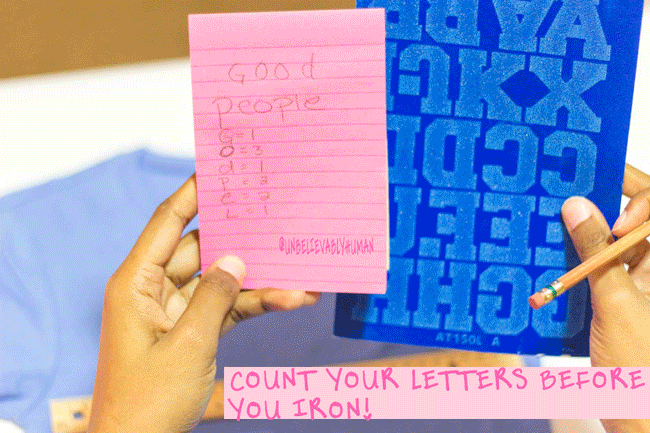 GOOd
people
G = 1
O = 3
d = 1
P = 2
e = 2
L = 1
@UNBELIEVABLYHUMAN
AT150L A
COUNT YOUR LETTERS BEFORE
YOU IRON!